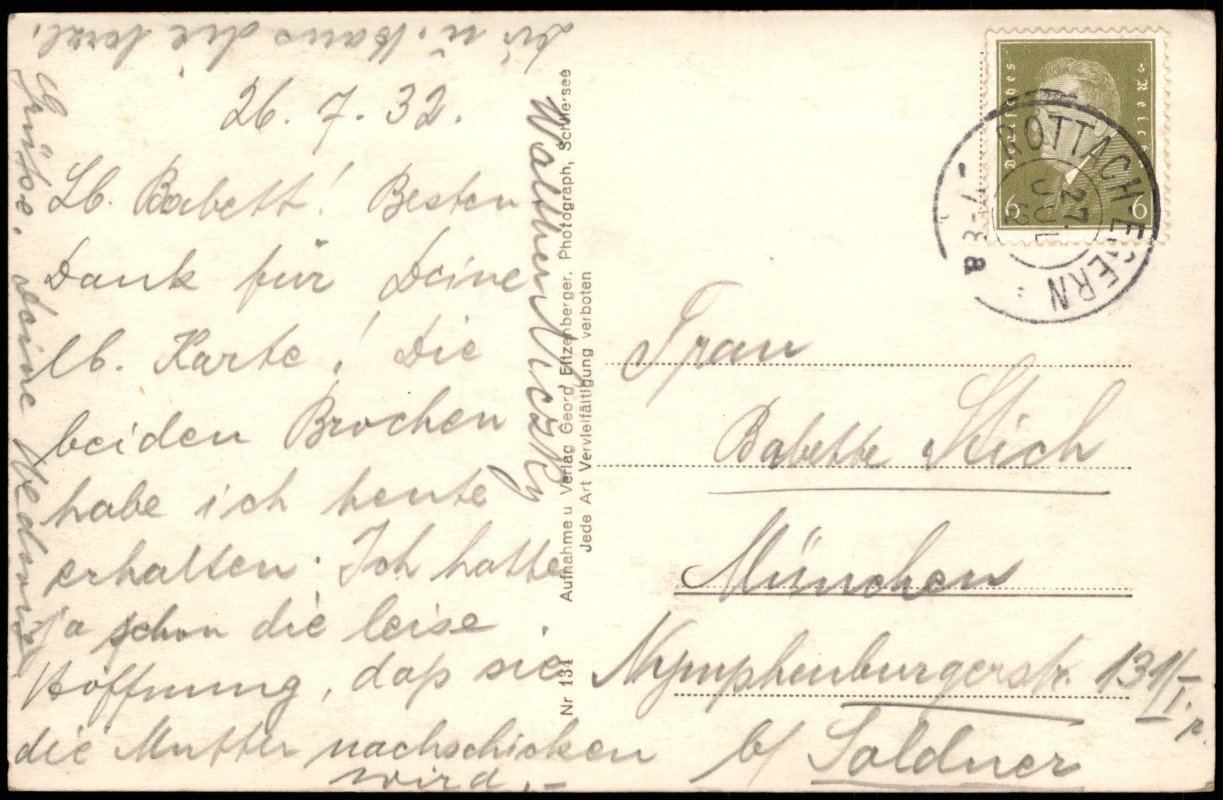 26. 7. 32.
Lb. Babett! Besten
Dank für Deine
lb. Karte! Die
beiden Brochen
habe ich heute
erhalten. Ich hatte
ja schon die leise
Hoffnung, daß sie
die Mutter nachschicken
wird.-
Grüße, deine Hedwig
Nr 134 Aufnahme u Verlag Georg Eitzenberger, Photograph, Schliersee
Jede Art Vervielfältigung verboten
Deutsches Reich
6 6
ROTTACH-EGERN
27
JUL
a
Frau
Babette Stich
München
Nymphenburgerstr. 131/I. r.
b/ Soldner